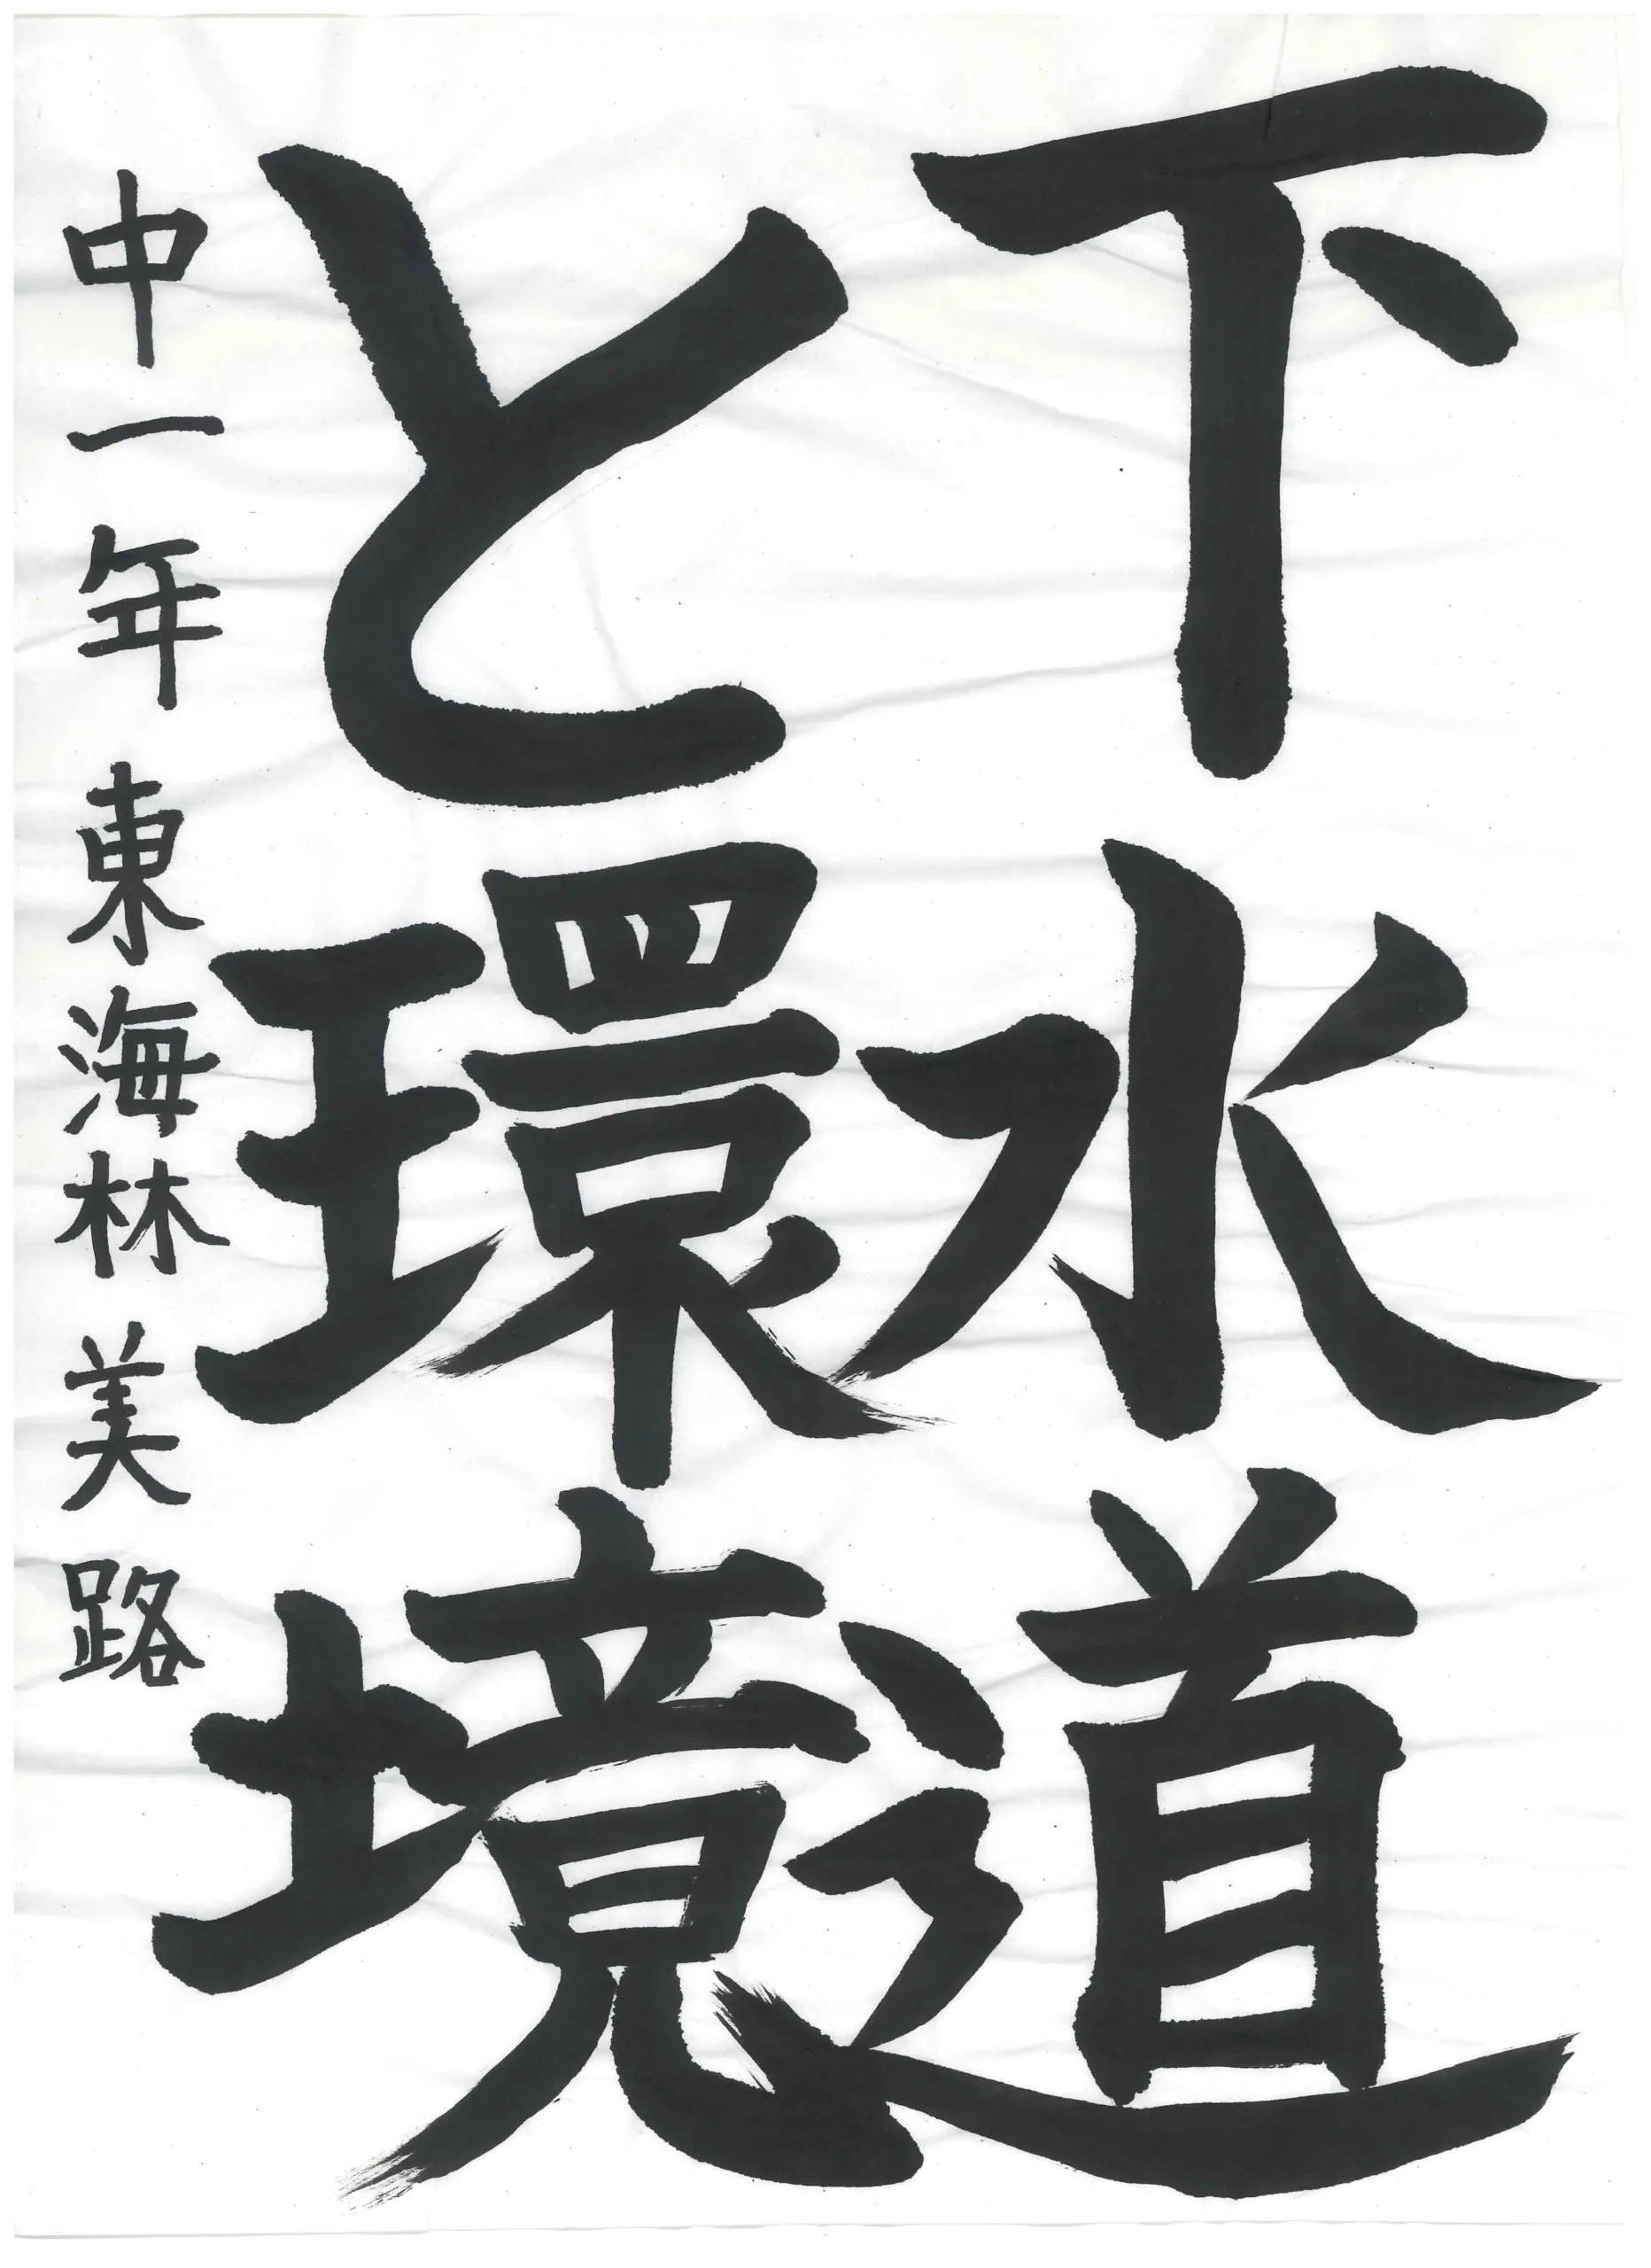 下水道
と環境
中一年 東海林 美路